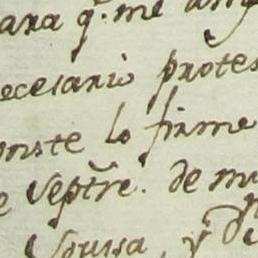 ara q.e me
ecesario protes
onste lo firme
e Septre. de m
Soussa, y D